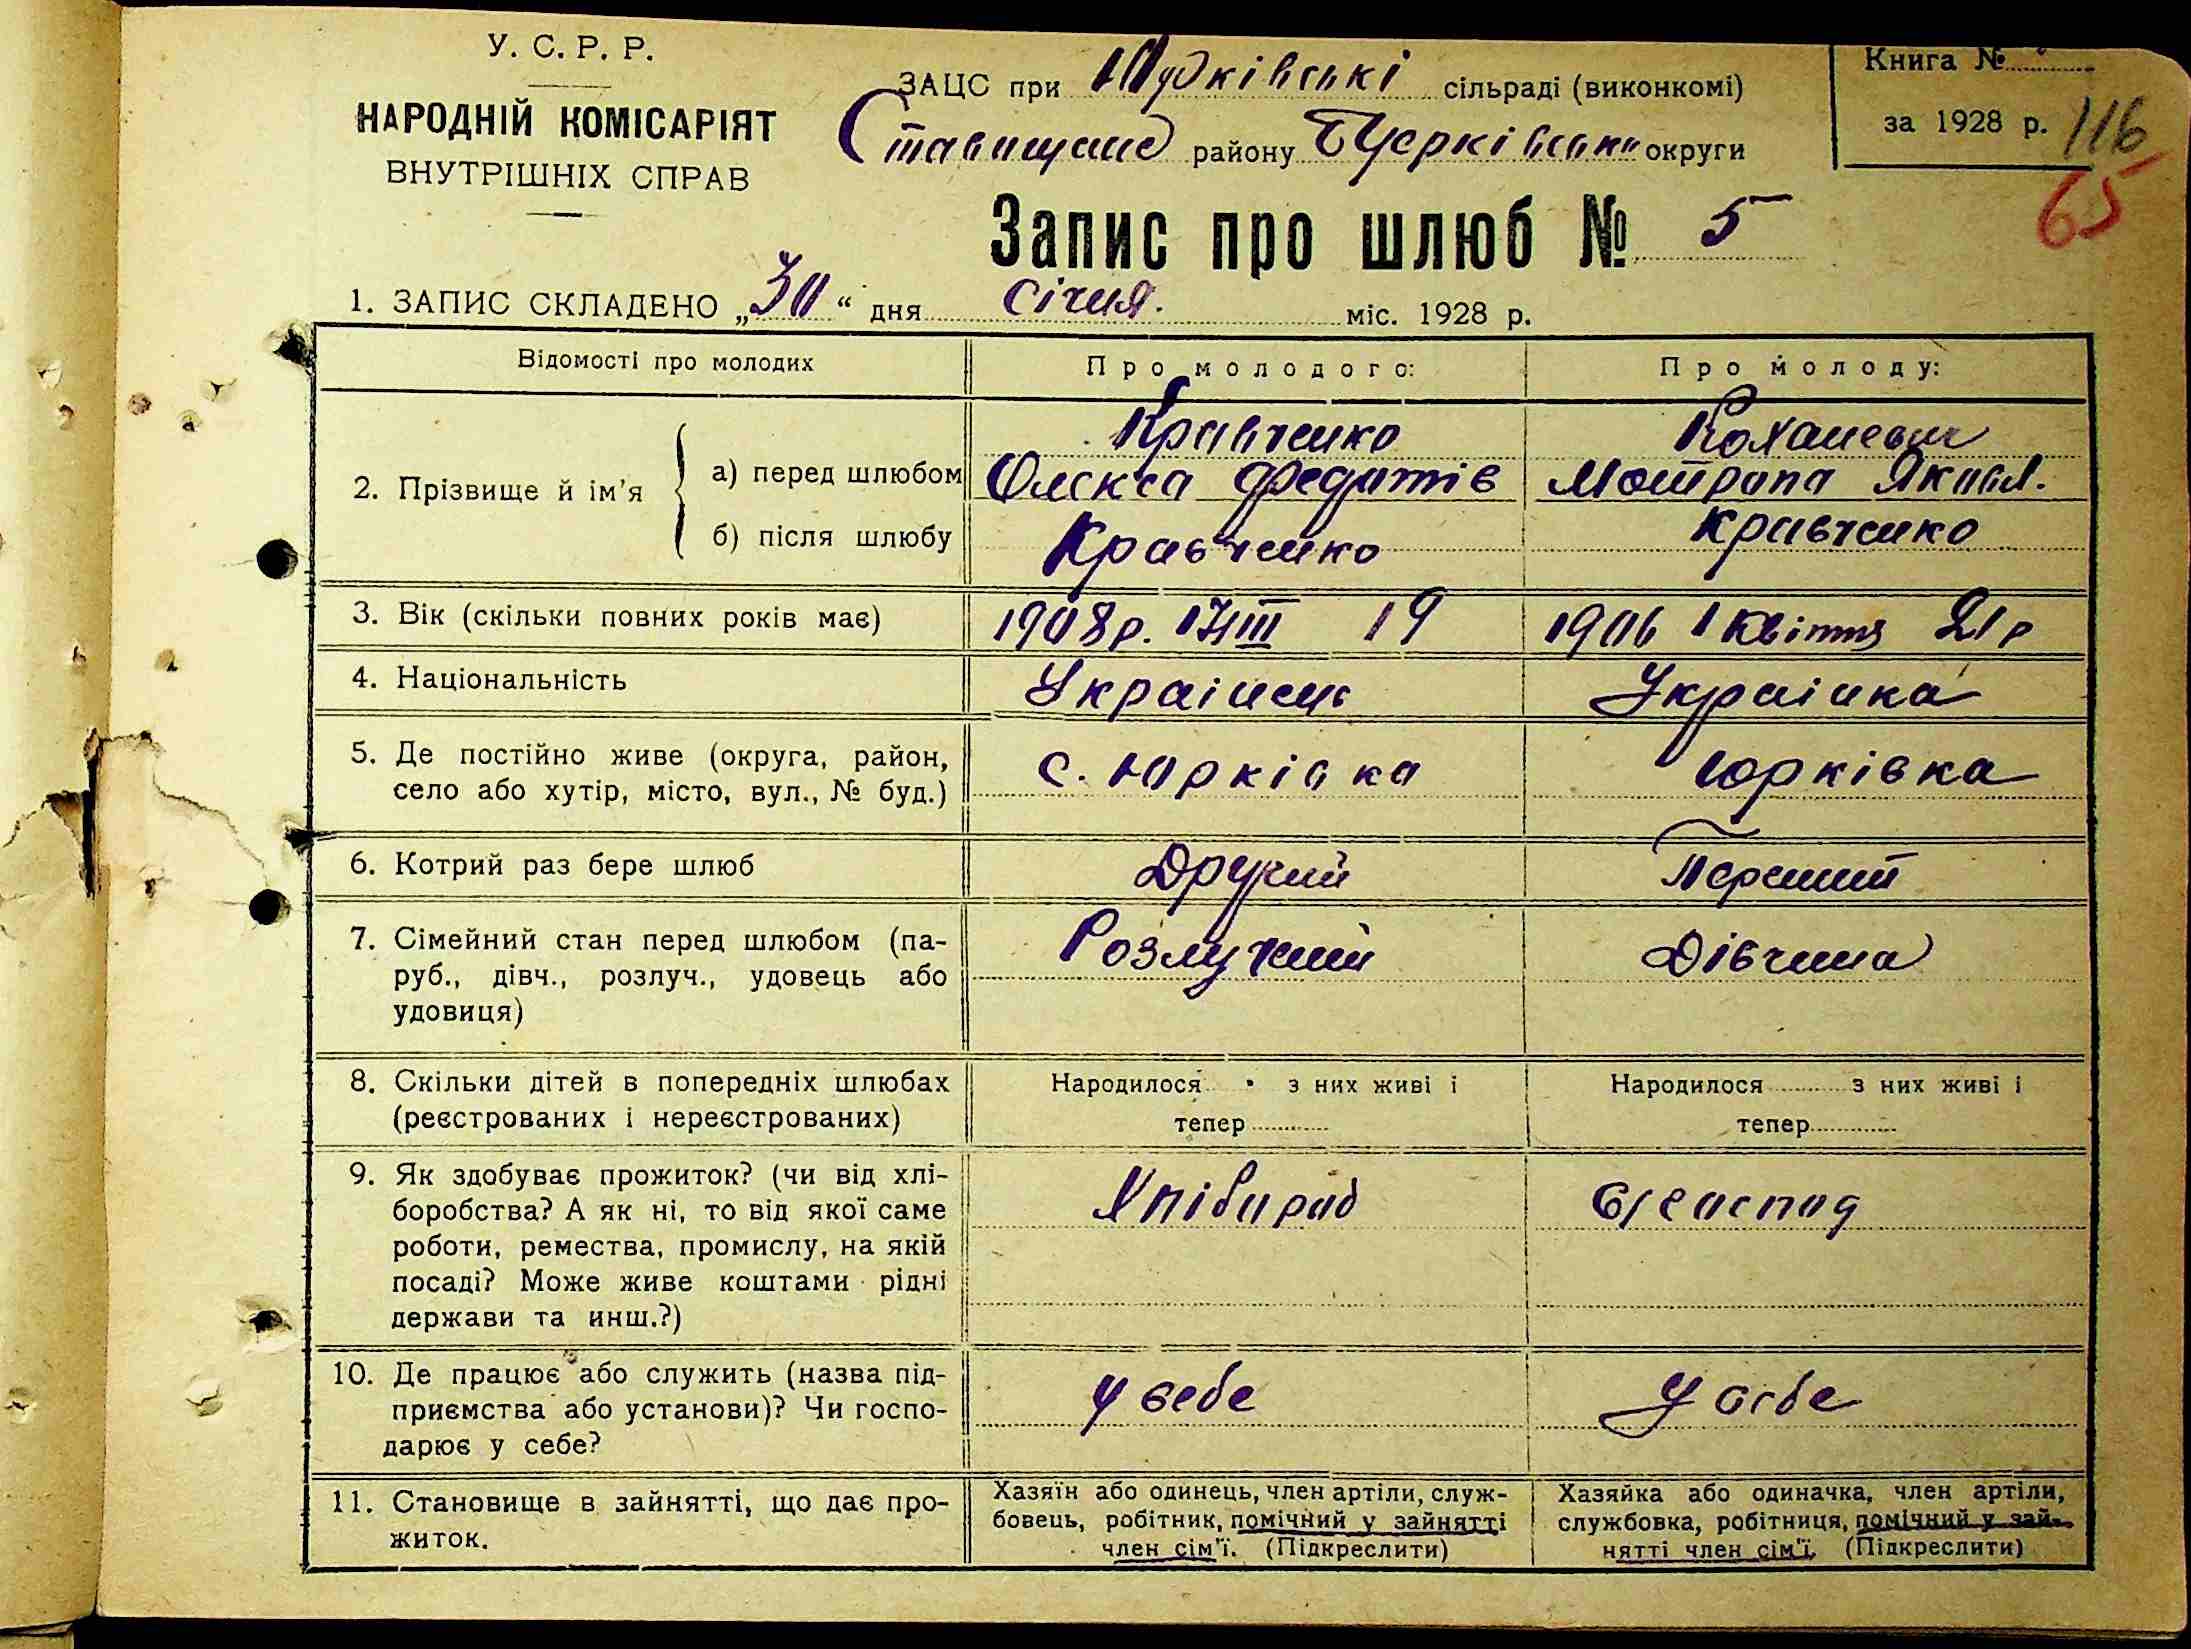 У. С. Р. Р.
НАРОДНІЙ КОМІСАРІЯТ
ВНУТРІШНІХ СПРАВ
ЗАЦС при Юрківські сільраді (виконкомі)
Ставищане району БЦерківськи округи
Книга №
за 1928 р.
116
65
Запис про шлюб № 5
1. ЗАПИС СКЛАДЕНО „30“ дня січня. міс. 1928 р.
Відомості про молодих
Про молодого:
Про молоду:
2. Прізвище й ім’я
а) перед шлюбом
Кравченко
Олекса Федотів
Коханевич
Мотрона Яковл.
б) після шлюбу
Кравченко
Кравченко
3. Вік (скільки повних років має)
1908р. 17/III 19
1906 1 квітня 21р
4. Національність
Українець
Українка
5. Де постійно живе (округа, район,
село або хутір, місто, вул., № буд.)
с. Юрківка
Юрківка
6. Котрий раз бере шлюб
Другий
Перший
7. Сімейний стан перед шлюбом (па-
руб., дівч., розлуч., удовець або
удовиця)
Розлучний
Дівчина
8. Скільки дітей в попередніх шлюбах
(реєстрованих і нереєстрованих)
Народилося з них живі і
тепер
Народилося з них живі і
тепер
9. Як здобуває прожиток? (чи від хлі-
боробства? А як ні, то від якої саме
роботи, ремества, промислу, на якій
посаді? Може живе коштами рідні
держави та инш.?)
Хлібороб
10. Де працює або служить (назва під-
приємства або установи)? Чи госпо-
дарює у себе?
у себе
у себе
11. Становище в зайнятті, що дає про-
житок.
Хазяїн або одинець, член артіли, служ-
бовець, робітник, помічний у зайнятті
член сім’ї. (Підкреслити)
Хазяйка або одиначка, член артіли,
службовка, робітниця, помічний у зай-
нятті член сім’ї. (Підкреслити)